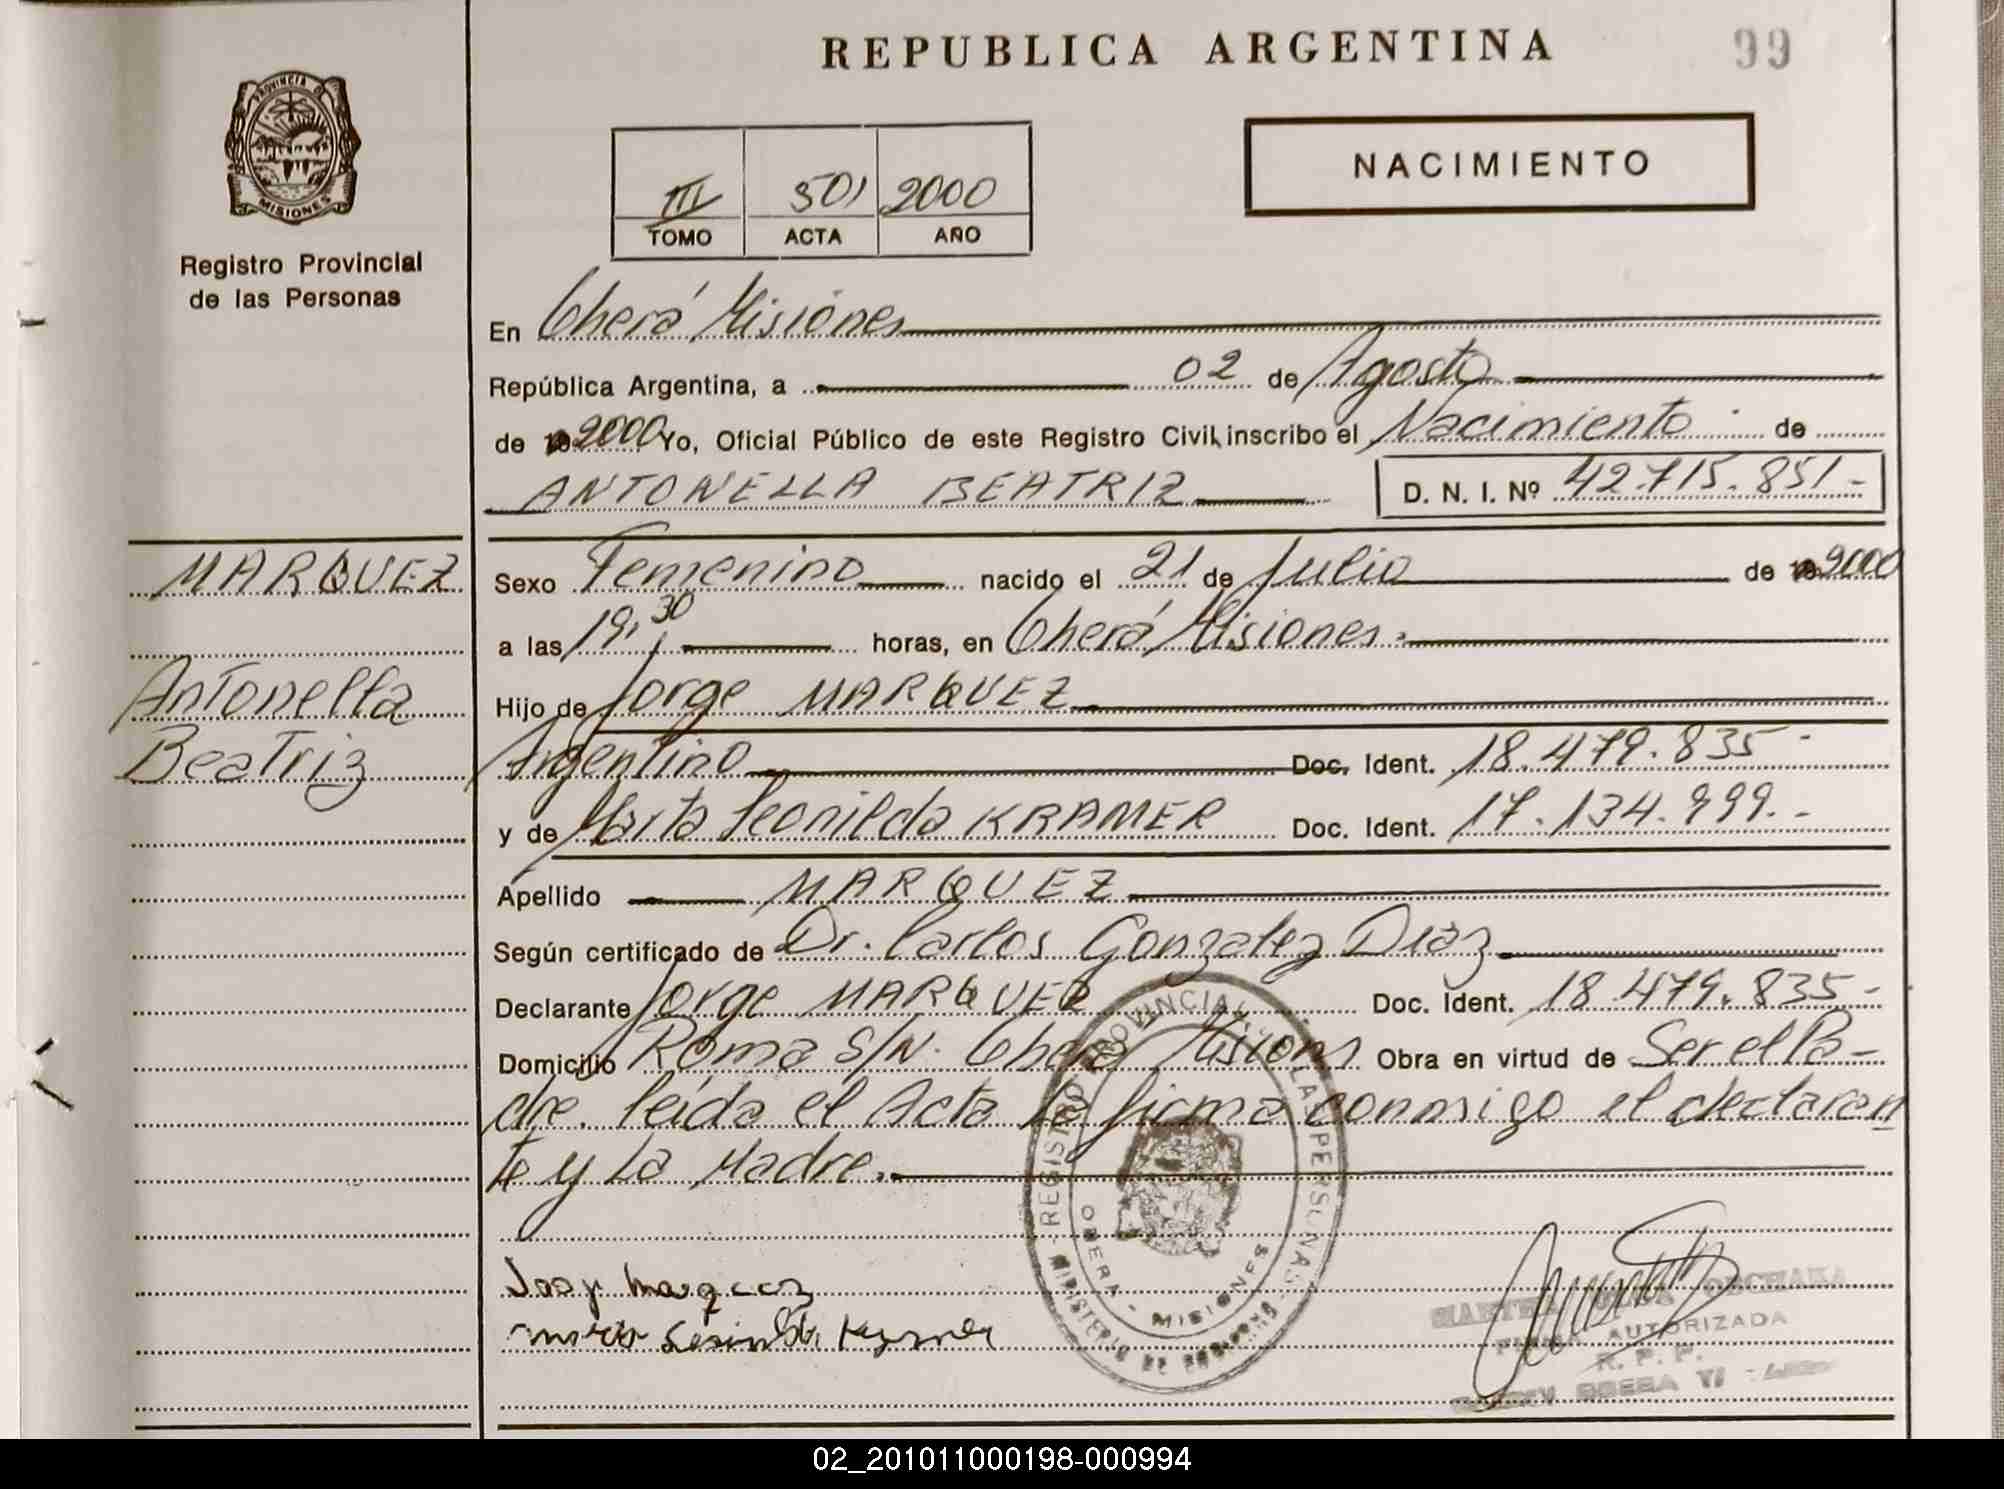 REPUBLICA ARGENTINA
99
PROVINCIA D
MISIONES
Registro Provincial
de las Personas
NACIMIENTO
III 501 2000
TOMO ACTA AÑO
En Oberá Misiones
República Argentina, a 02 de Agosto
de 2000 Yo, Oficial Público de este Registro Civil, inscribo el Nacimiento de
ANTONELLA BEATRIZ D. N. I. Nº 42.715.851.-
MARQUEZ
Antonella
Beatriz
Sexo Femenino nacido el 21 de Julio de 2000
a las 19,30 horas, en Oberá Misiones.
Hijo de Jorge MARQUEZ
Argentino Doc. Ident. 18.479.835-
y de Marta Leonilda KRAMER Doc. Ident. 17.134.999.-
Apellido MARQUEZ
Según certificado de Dr. Carlos Gonzalez Diaz
Declarante Jorge MARQUEZ Doc. Ident. 18.479.835-
Domicilio Roma S/N. Oberá Misions Obra en virtud de Ser el Pa-
dre. leida el Acta la firma conmigo el declaran
te y La Madre.
REGISTRO PROVINCIAL LAS PERSONAS
OBERA - MISIONES
MINISTERIO DE GOBIERNO
FIRMA AUTORIZADA
R. P. P.
OBERA VI
02_201011000198-000994